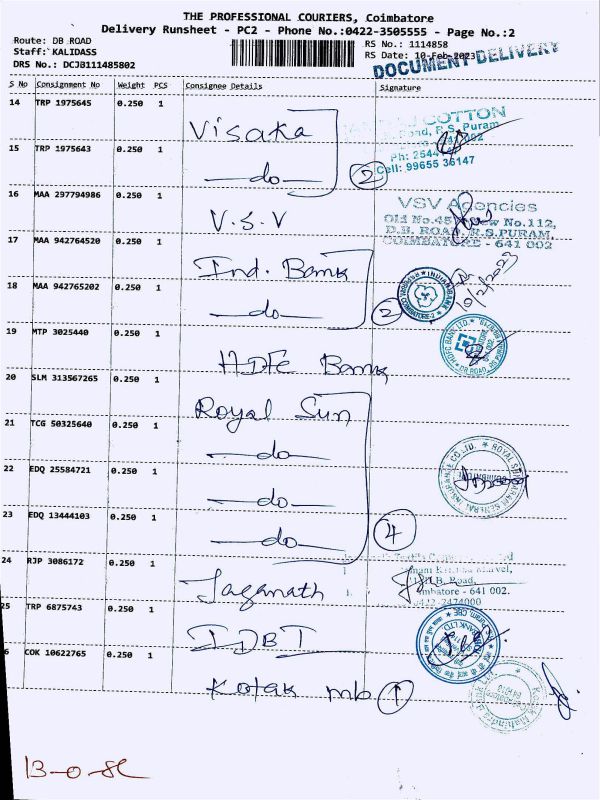 THE PROFESSIONAL COURIERS, Coimbatore
Delivery Runsheet - PC2 - Phone No.:0422-3505555 - Page No.:2
Route: DB ROAD
RS No.: 1114858
Staff: KALIDASS
RS Date: 10-Feb-2023
DRS No.: DCJB111485802
DOCUMENT DELIVERY
S No Consignment No Weight PCS Consignee Details Signature
14 TRP 1975645 0.250 1 Visaka
COTTON
Road, R.S. Puram
15 TRP 1975643 0.250 1 —do— 2
Cell: 99655 36147
16 MAA 297794986 0.250 1 V.S.V
VSV Agencies
Old No.45 New No.112,
D.B. ROAD, R.S.PURAM,
COIMBATORE - 641 002
17 MAA 942764520 0.250 1 Ind. Bank
18 MAA 942765202 0.250 1 —do— 2
INDIAN BANK
19 MTP 3025440 0.250 1 HDFC Bank
HDFC BANK LTD.
20 SLM 313567265 0.250 1 Royal Sun
21 TCG 50325640 0.250 1 —do—
22 EDQ 25584721 0.250 1 —do—
23 EDQ 13444103 0.250 1 —do— 4
24 RJP 3086172 0.250 1 Jaganath
B. Road,
mbatore - 641 002.
0422-2474000
25 TRP 6875743 0.250 1 IDBI
6 COK 10622765 0.250 1 Kotak mb 1